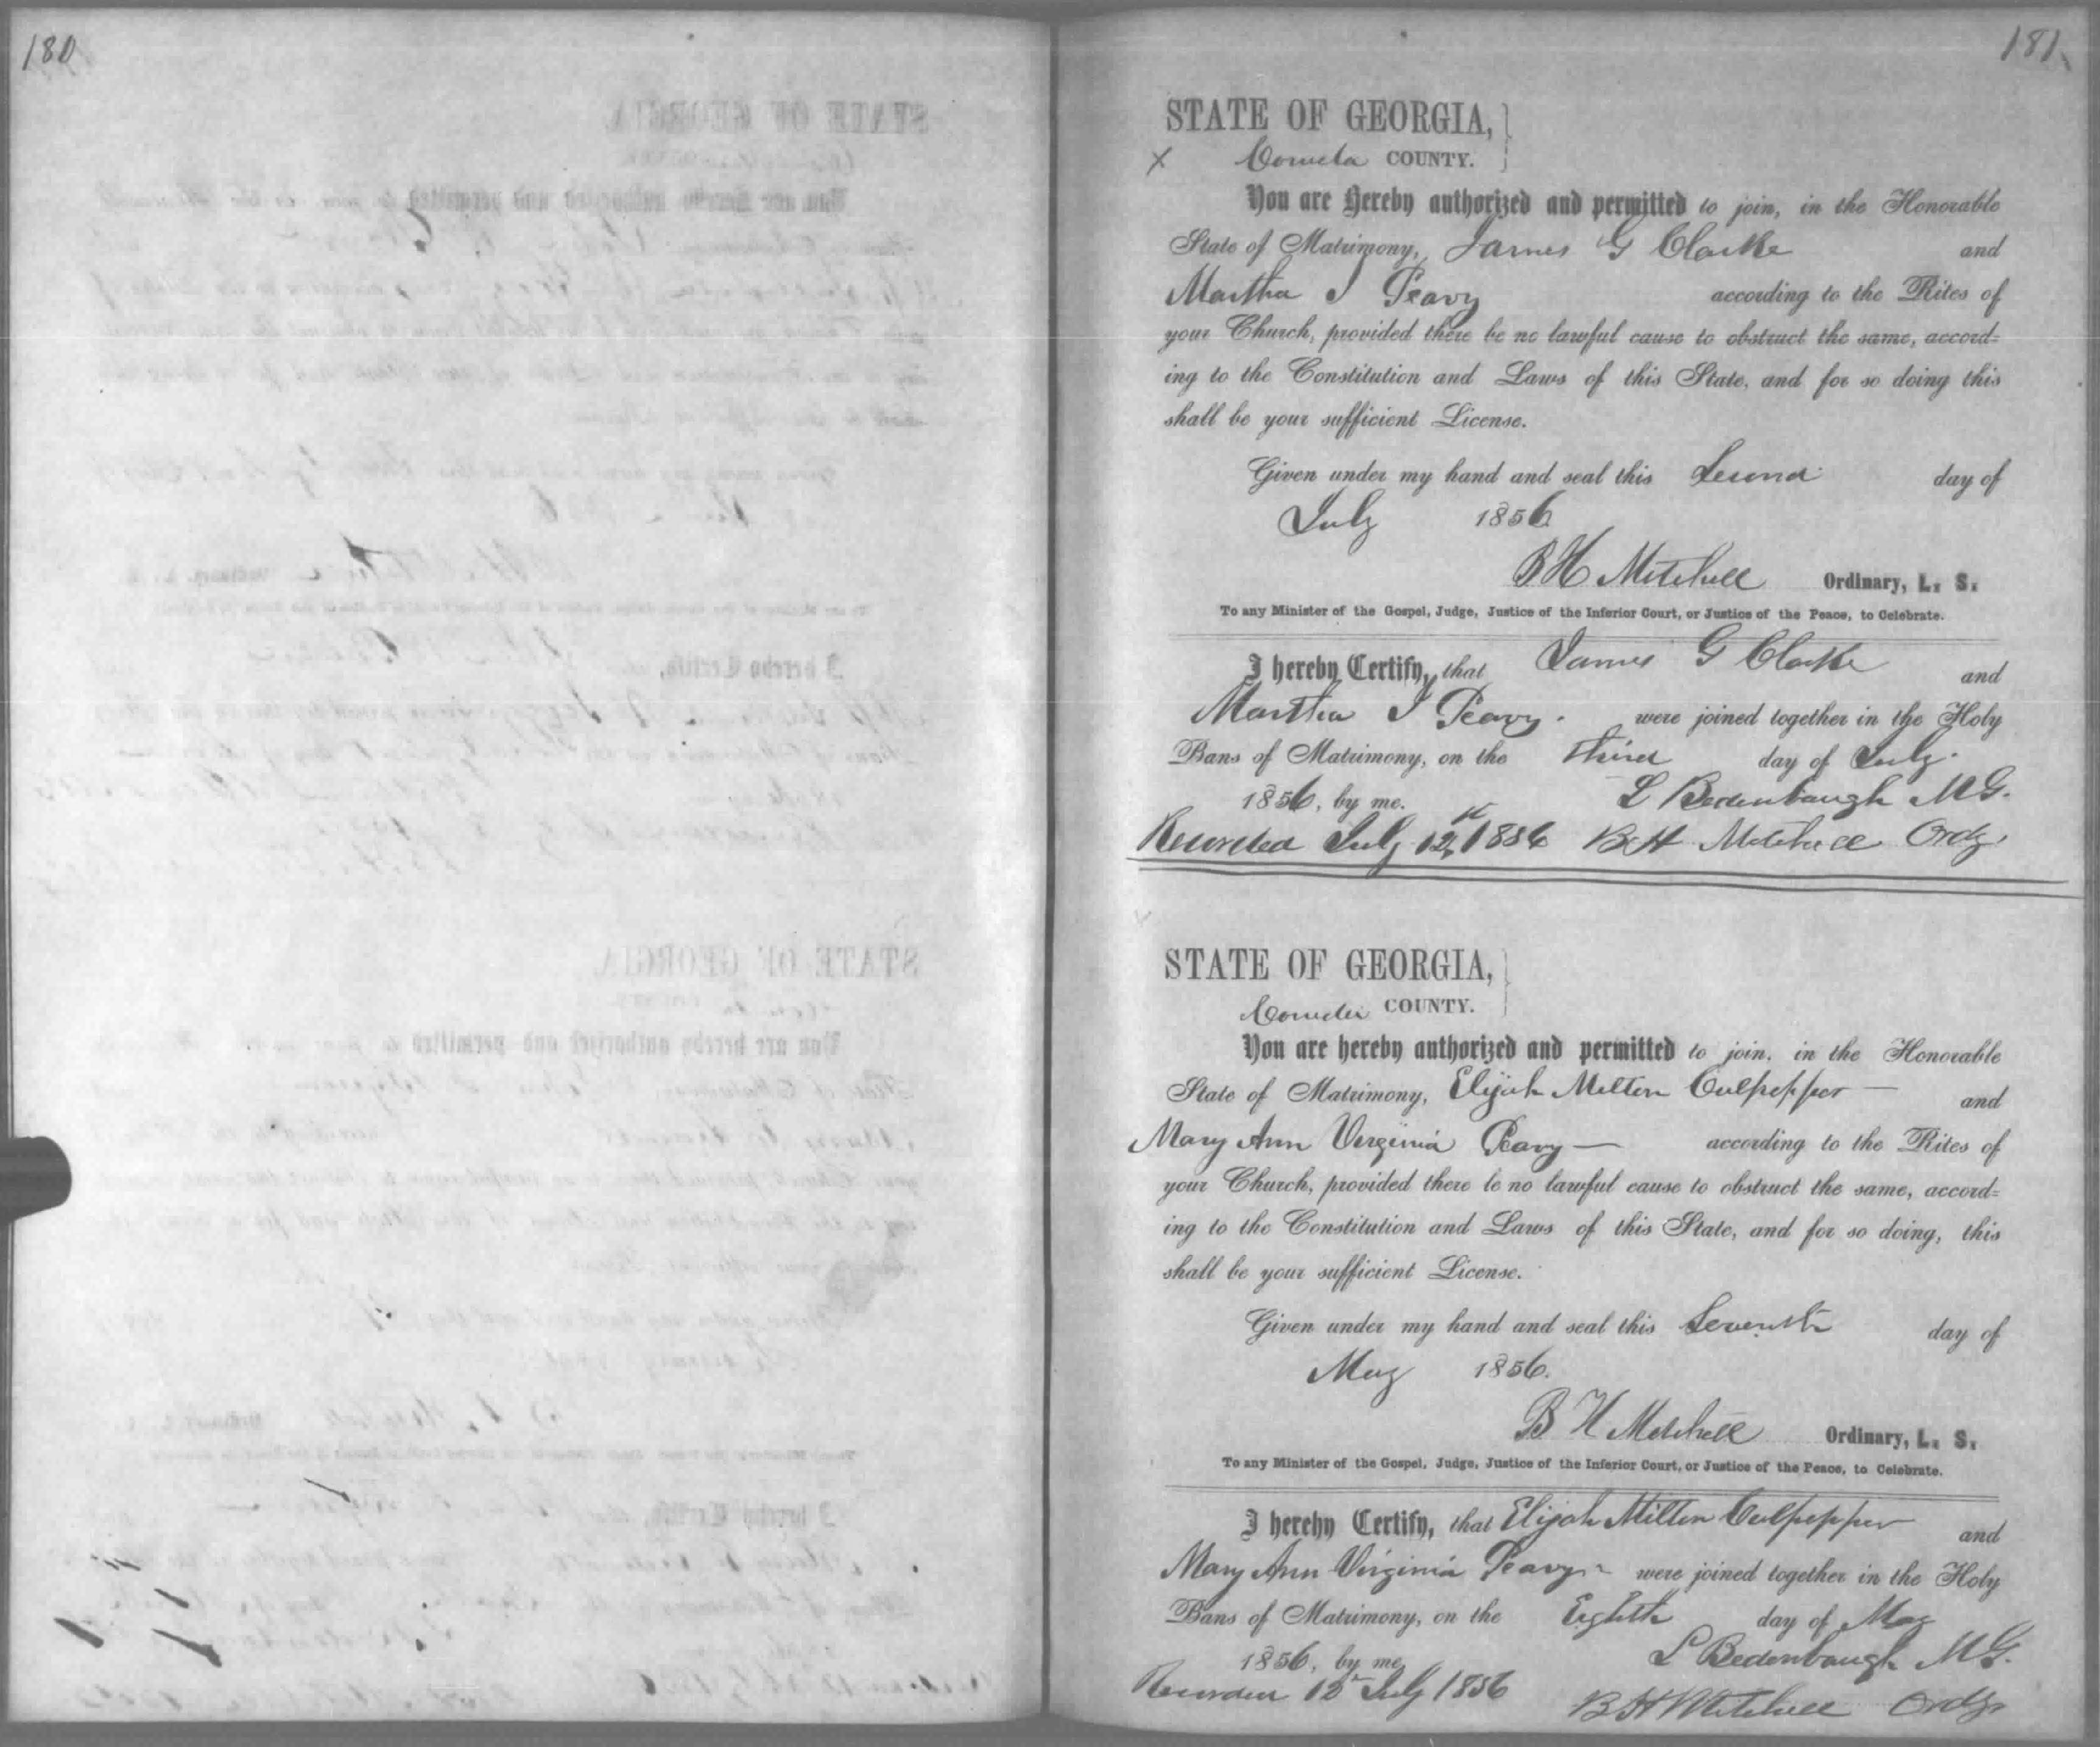 180
181
STATE OF GEORGIA,
Coweta COUNTY.
You are Hereby authorized and permitted to join, in the Honorable
State of Matrimony, James G Clarke and
Martha J Peavy according to the Rites of
your Church, provided there be no lawful cause to obstruct the same, accord=
ing to the Constitution and Laws of this State, and for so doing this
shall be your sufficient License.
Given under my hand and seal this Second day of
July 1856
B H Mitchell Ordinary, L. S.
To any Minister of the Gospel, Judge, Justice of the Inferior Court, or Justice of the Peace, to Celebrate.
I hereby Certify, that James G Clarke and
Martha J Peavy. were joined together in the Holy
Bans of Matrimony, on the Third day of July.
1856, by me. L Bedenbaugh M G.
Recorded July 12th 1856 B H Mitchell Ordy
STATE OF GEORGIA,
Coweta COUNTY.
You are hereby authorized and permitted to join, in the Honorable
State of Matrimony, Elijah Milton Culpepper — and
Mary Ann Virginia Peavy — according to the Rites of
your Church, provided there be no lawful cause to obstruct the same, accord=
ing to the Constitution and Laws of this State, and for so doing, this
shall be your sufficient License.
Given under my hand and seal this Seventh day of
May 1856.
B H Mitchell Ordinary, L. S.
To any Minister of the Gospel, Judge, Justice of the Inferior Court, or Justice of the Peace, to Celebrate.
I hereby Certify, that Elijah Milton Culpepper and
Mary Ann Virginia Peavy - were joined together in the Holy
Bans of Matrimony, on the Eighth day of May
1856, by me, L Bedenbaugh M G.
Recorded 12 July 1856 B H Mitchell Ordy